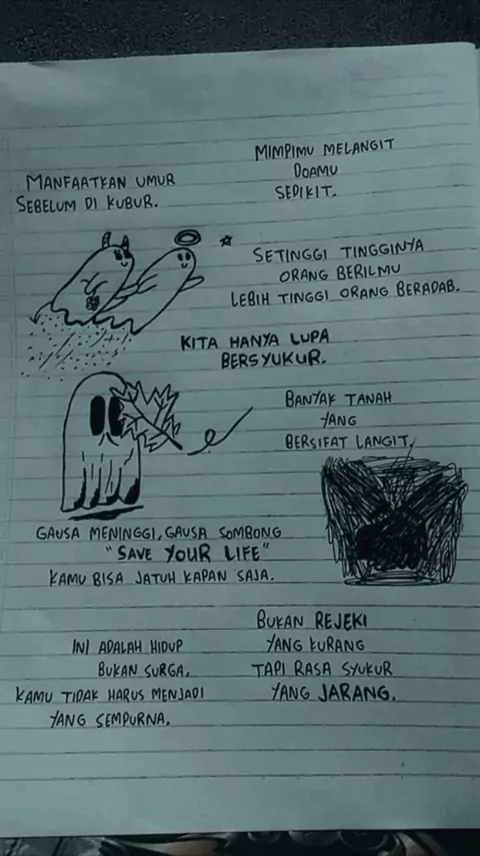 MANFAATKAN UMUR
SEBELUM DI KUBUR.
MIMPIMU MELANGIT
DOAMU
SEDIKIT.
SETINGGI TINGGINYA
ORANG BERILMU
LEBIH TINGGI ORANG BERADAB.
KITA HANYA LUPA
BERSYUKUR.
BANYAK TANAH
YANG
BERSIFAT LANGIT,
GAUSA MENINGGI, GAUSA SOMBONG
"SAVE YOUR LIFE"
KAMU BISA JATUH KAPAN SAJA.
INI ADALAH HIDUP
BUKAN SURGA,
KAMU TIDAK HARUS MENJADI
YANG SEMPURNA.
BUKAN REJEKI
YANG KURANG
TAPI RASA SYUKUR
YANG JARANG.